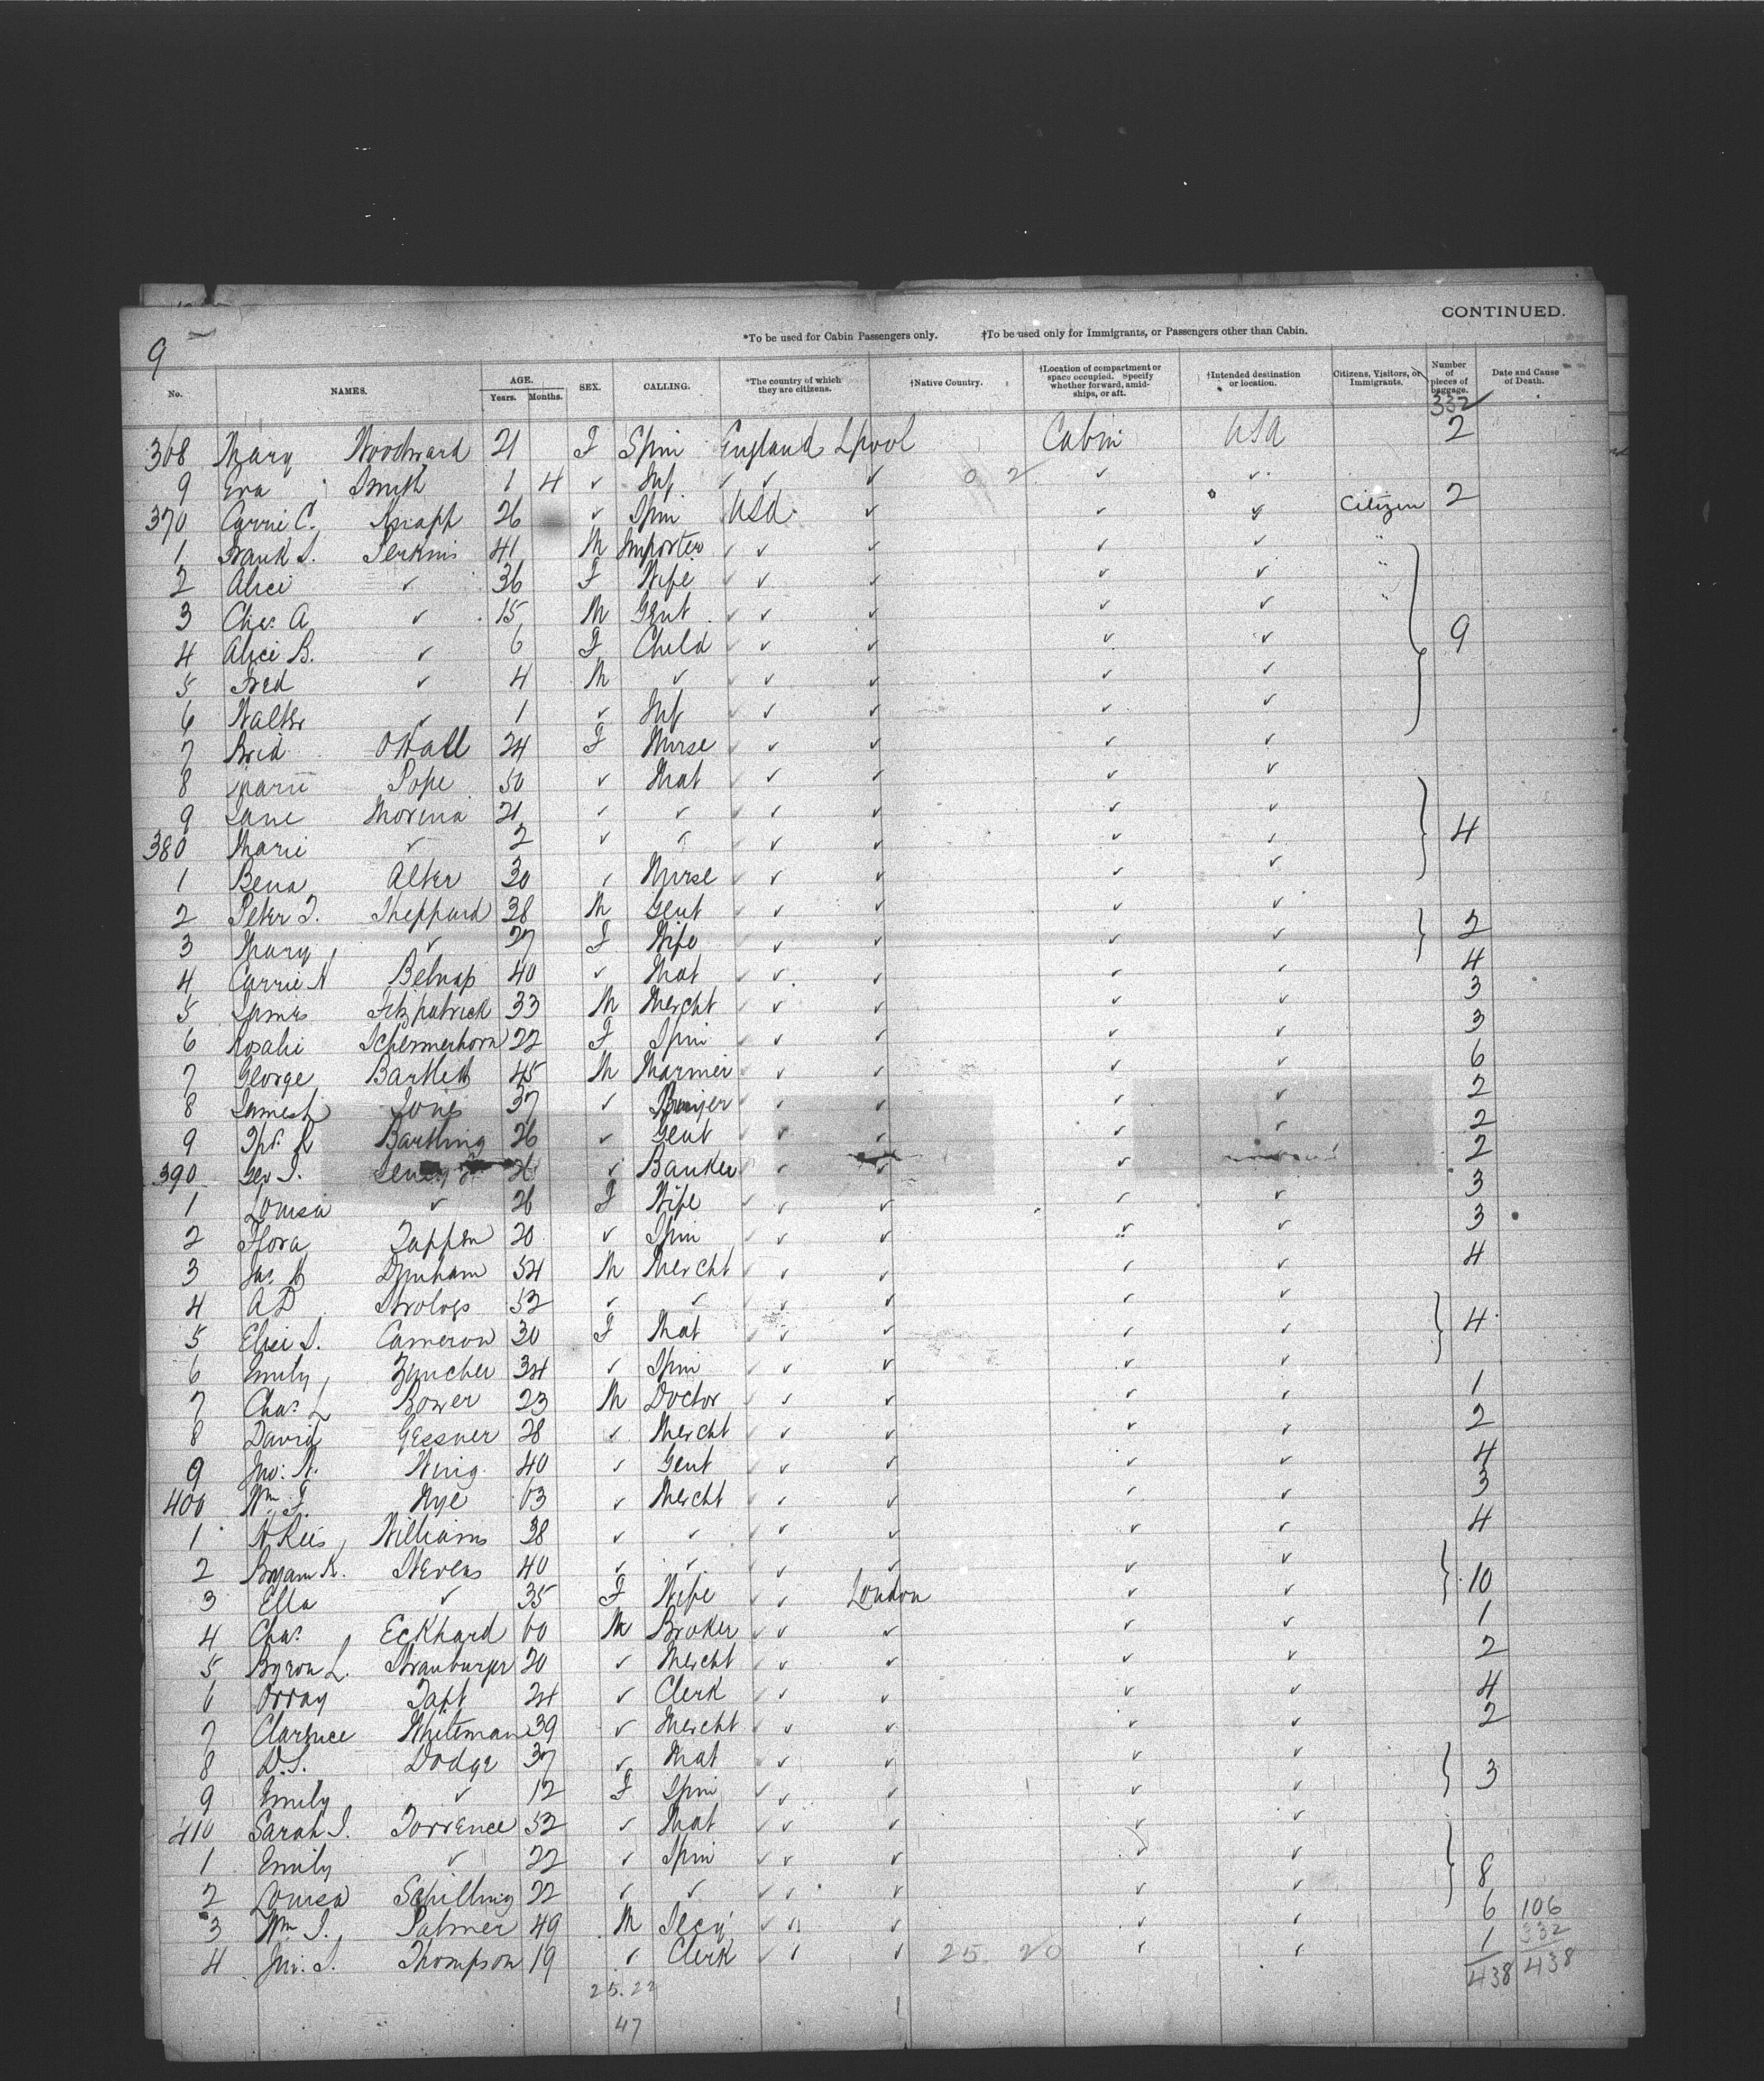 CONTINUED.
*To be used for Cabin Passengers only. †To be used only for Immigrants, or Passengers other than Cabin.
9
No. NAMES. AGE. Years. Months. SEX. CALLING. *The country of which they are citizens. †Native Country. †Location of compartment or space occupied. Specify whether forward, amid-ships, or aft. †Intended destination or location. Citizens, Visitors, or Immigrants. Number of pieces of baggage. Date and Cause of Death.
332
368 Mary Woodward 21 F Spin England Lpool Cabin USA 2
9 Eva Smith 1 4 ✓ Inf ✓ ✓ ✓ 0 2 ✓ ✓
370 Carrie C. Knapp 26 ✓ Spin USA ✓ ✓ ✓ Citizen 2
1 Frank S. Perkins 41 M Importer ✓ ✓ ✓ ✓ ✓ "
2 Alice ✓ 36 F Wife ✓ ✓ ✓ ✓ ✓ "
3 Chas. A ✓ 15 M Gent ✓ ✓ ✓ ✓ ✓ "
4 Alice B. ✓ 6 F Child ✓ ✓ ✓ ✓ ✓ 9
5 Fred ✓ 4 M ✓ ✓ ✓ ✓ ✓ ✓
6 Walter ✓ 1 ✓ Inf ✓ ✓ ✓ ✓ ✓
7 Brid 24 F Nurse ✓ ✓ ✓ ✓ ✓
8 Marie Pope 50 ✓ Mat ✓ ✓ ✓ ✓ ✓
9 Jane 21 ✓ ✓ ✓ ✓ ✓ ✓ ✓
380 Marie ✓ 2 ✓ ✓ ✓ ✓ ✓ ✓ ✓ 4
1 Bena Alter 30 ✓ Nurse ✓ ✓ ✓ ✓ ✓
2 Peter T. Sheppard 38 M Gent ✓ ✓ ✓ ✓ ✓ 2
3 Mary ✓ 27 F Wife ✓ ✓ ✓ ✓ ✓
4 Carrie N Belnap 40 ✓ Mat ✓ ✓ ✓ ✓ ✓ 4
5 James Fitzpatrick 33 M Mercht ✓ ✓ ✓ ✓ ✓ 3
6 Rosalie Schermerhorn 22 F Spin ✓ ✓ ✓ ✓ ✓ 3
7 George Bartlett 45 M Mariner ✓ ✓ ✓ ✓ ✓ 6
8 James Jones 37 ✓ ✓ ✓ ✓ ✓ ✓ 2
9 Bartling 26 ✓ Gent ✓ ✓ ✓ ✓ ✓ 2
390 Geo. 26 ✓ Banker ✓ ✓ ✓ ✓ 2
1 Louisa ✓ 26 F Wife ✓ ✓ ✓ ✓ ✓ 3
2 Flora Tappen 20 ✓ Spin ✓ ✓ ✓ ✓ ✓ 3
3 Jas. Dunham 54 M Mercht ✓ ✓ ✓ ✓ ✓ 4
4 A D 52 ✓ ✓ ✓ ✓ ✓ ✓ ✓
5 Elsie S. Cameron 30 F Mat ✓ ✓ ✓ ✓ ✓ 4
6 Emily 34 ✓ Spin ✓ ✓ ✓ ✓ ✓
7 Chas. L Bower 23 M Doctor ✓ ✓ ✓ ✓ 1
8 David Gessner 28 ✓ Mercht ✓ ✓ ✓ ✓ ✓ 2
9 Jno. N. Wing 40 ✓ Gent ✓ ✓ ✓ ✓ ✓ 4
400 Wm. F. Nye 63 ✓ Mercht ✓ ✓ ✓ ✓ ✓ 3
1 Williams 38 ✓ ✓ ✓ ✓ ✓ ✓ ✓ 4
2 Byam K. Stevens 40 ✓ ✓ ✓ ✓ ✓ ✓ ✓
3 Ella ✓ 35 F Wife ✓ ✓ London ✓ ✓ 10
4 Chas. Eckhard 60 M Broker ✓ ✓ ✓ ✓ ✓ 1
5 Byron L. Strauburger 20 ✓ Mercht ✓ ✓ ✓ ✓ ✓ 2
6 Orray Taft 24 ✓ Clerk ✓ ✓ ✓ ✓ ✓ 4
7 Clarence Whiteman 39 ✓ Mercht ✓ ✓ ✓ ✓ ✓ 2
8 D.S. Dodge 37 ✓ Mat ✓ ✓ ✓ ✓ ✓
9 Emily ✓ 12 F Spin ✓ ✓ ✓ ✓ ✓ 3
410 Sarah J. Torrence 52 ✓ Mat ✓ ✓ ✓ ✓ ✓
1 Emily ✓ 22 ✓ Spin ✓ ✓ ✓ ✓ ✓ 8
2 Louisa Schilling 22 ✓ ✓ ✓ ✓ ✓ ✓ ✓
3 Wm. J. Palmer 49 M Secy ✓ ✓ ✓ ✓ ✓ 6 106
4 Jno. S. Thompson 19 ✓ Clerk ✓ ✓ ✓ 25. 20 ✓ ✓ 1 332
25.22 438 438
47